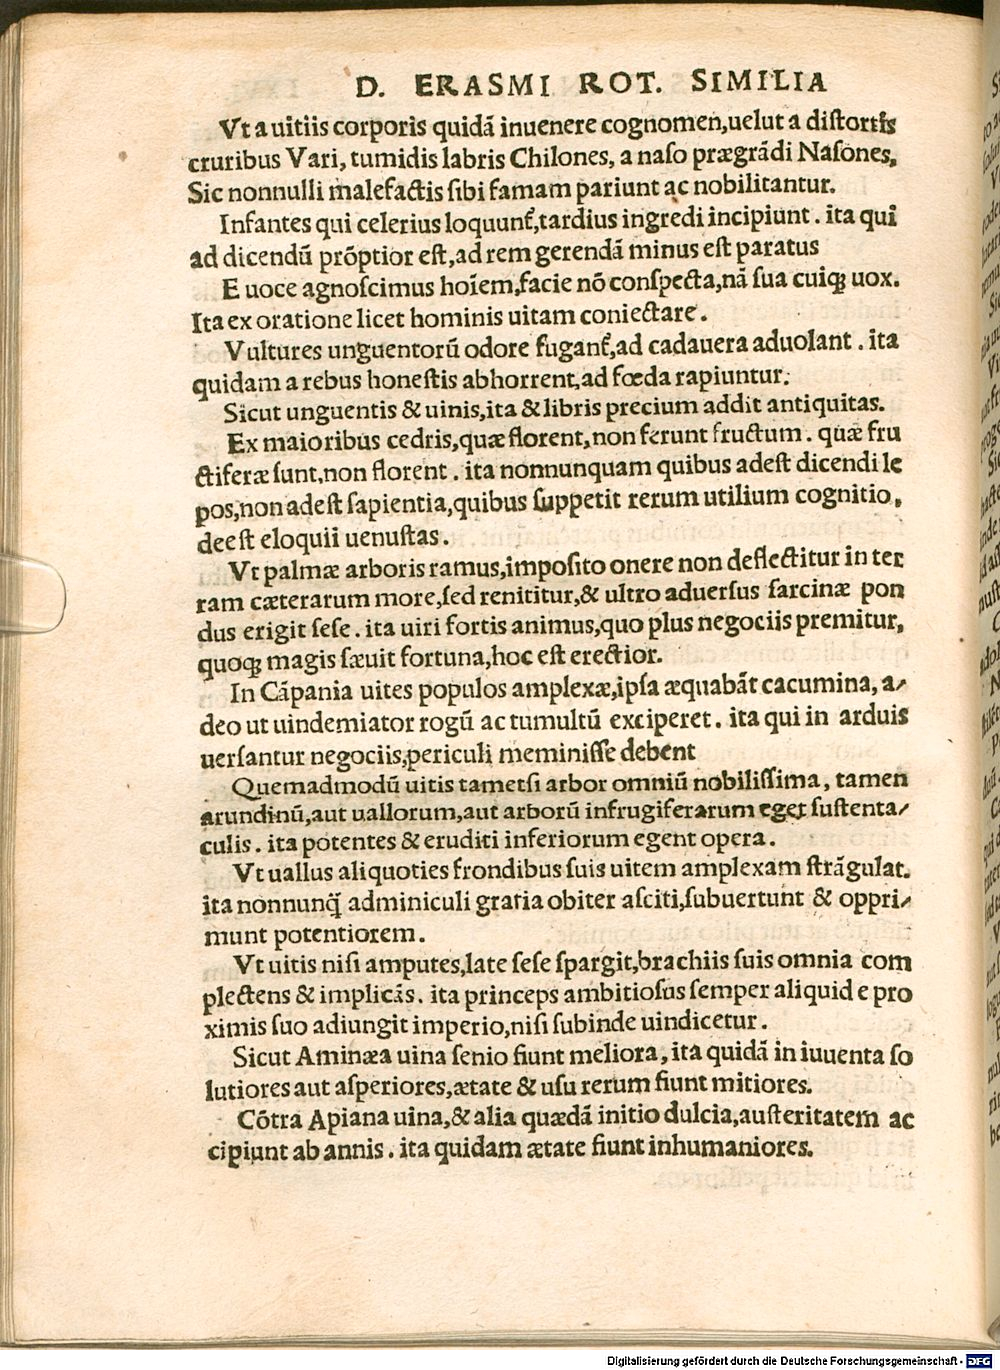 D. ERASMI ROT. SIMILIA
Vt a uitiis corporis quidã inuenere cognomen,uelut a diſtortis
cruribus Vari, tumidis labris Chilones, a naſo prægrãdi Naſones,
Sic nonnulli malefactis ſibi famam pariunt ac nobilitantur.
Infantes qui celerius loquunt᷑,tardius ingredi incipiunt. ita qui
ad dicendũ prõptior eſt,ad rem gerendã minus eſt paratus
E uoce agnoſcimus hoĩem,facie nõ conſpecta,nã ſua cuiqꝫ uox.
Ita ex oratione licet hominis uitam coniectare.
Vultures unguentorũ odore fugant᷑,ad cadauera aduolant. ita
quidam a rebus honeſtis abhorrent,ad fœda rapiuntur.
Sicut unguentis & uinis,ita & libris precium addit antiquitas.
Ex maioribus cedris,quæ florent,non ferunt fructum. quæ fru
ctiferæ ſunt,non florent. ita nonnunquam quibus adeſt dicendi le
pos,non adeſt ſapientia,quibus ſuppetit rerum utilium cognitio,
deeſt eloquii uenuſtas.
Vt palmæ arboris ramus,impoſito onere non deflectitur in ter
ram cæterarum more,ſed renititur,& ultro aduerſus ſarcinæ pon
dus erigit ſeſe. ita uiri fortis animus,quo plus negociis premitur,
quoqꝫ magis ſæuit fortuna,hoc eſt erectior.
In Cãpania uites populos amplexæ,ipſa æquabãt cacumina, a⸗
deo ut uindemiator rogũ ac tumultũ exciperet. ita qui in arduis
uerſantur negociis,periculi meminiſſe debent
Quemadmodũ uitis tametſi arbor omniũ nobiliſſima, tamen
arundinũ,aut uallorum,aut arborũ infrugiferarum eget ſuſtenta⸗
culis. ita potentes & eruditi inferiorum egent opera.
Vt uallus aliquoties frondibus ſuis uitem amplexam ſtrãgulat.
ita nonnunq̃ adminiculi gratia obiter aſciti,ſubuertunt & oppri⸗
munt potentiorem.
Vt uitis niſi amputes,late ſeſe ſpargit,brachiis ſuis omnia com
plectens & implicãs. ita princeps ambitioſus ſemper aliquid e pro
ximis ſuo adiungit imperio,niſi ſubinde uindicetur.
Sicut Aminæa uina ſenio fiunt meliora, ita quidã in iuuenta ſo
lutiores aut aſperiores,ætate & uſu rerum fiunt mitiores.
Cõtra Apiana uina,& alia quædã initio dulcia,auſteritatem ac
cipiunt ab annis. ita quidam ætate fiunt inhumaniores.
Digitalisierung gefördert durch die Deutsche Forschungsgemeinschaft - DFG